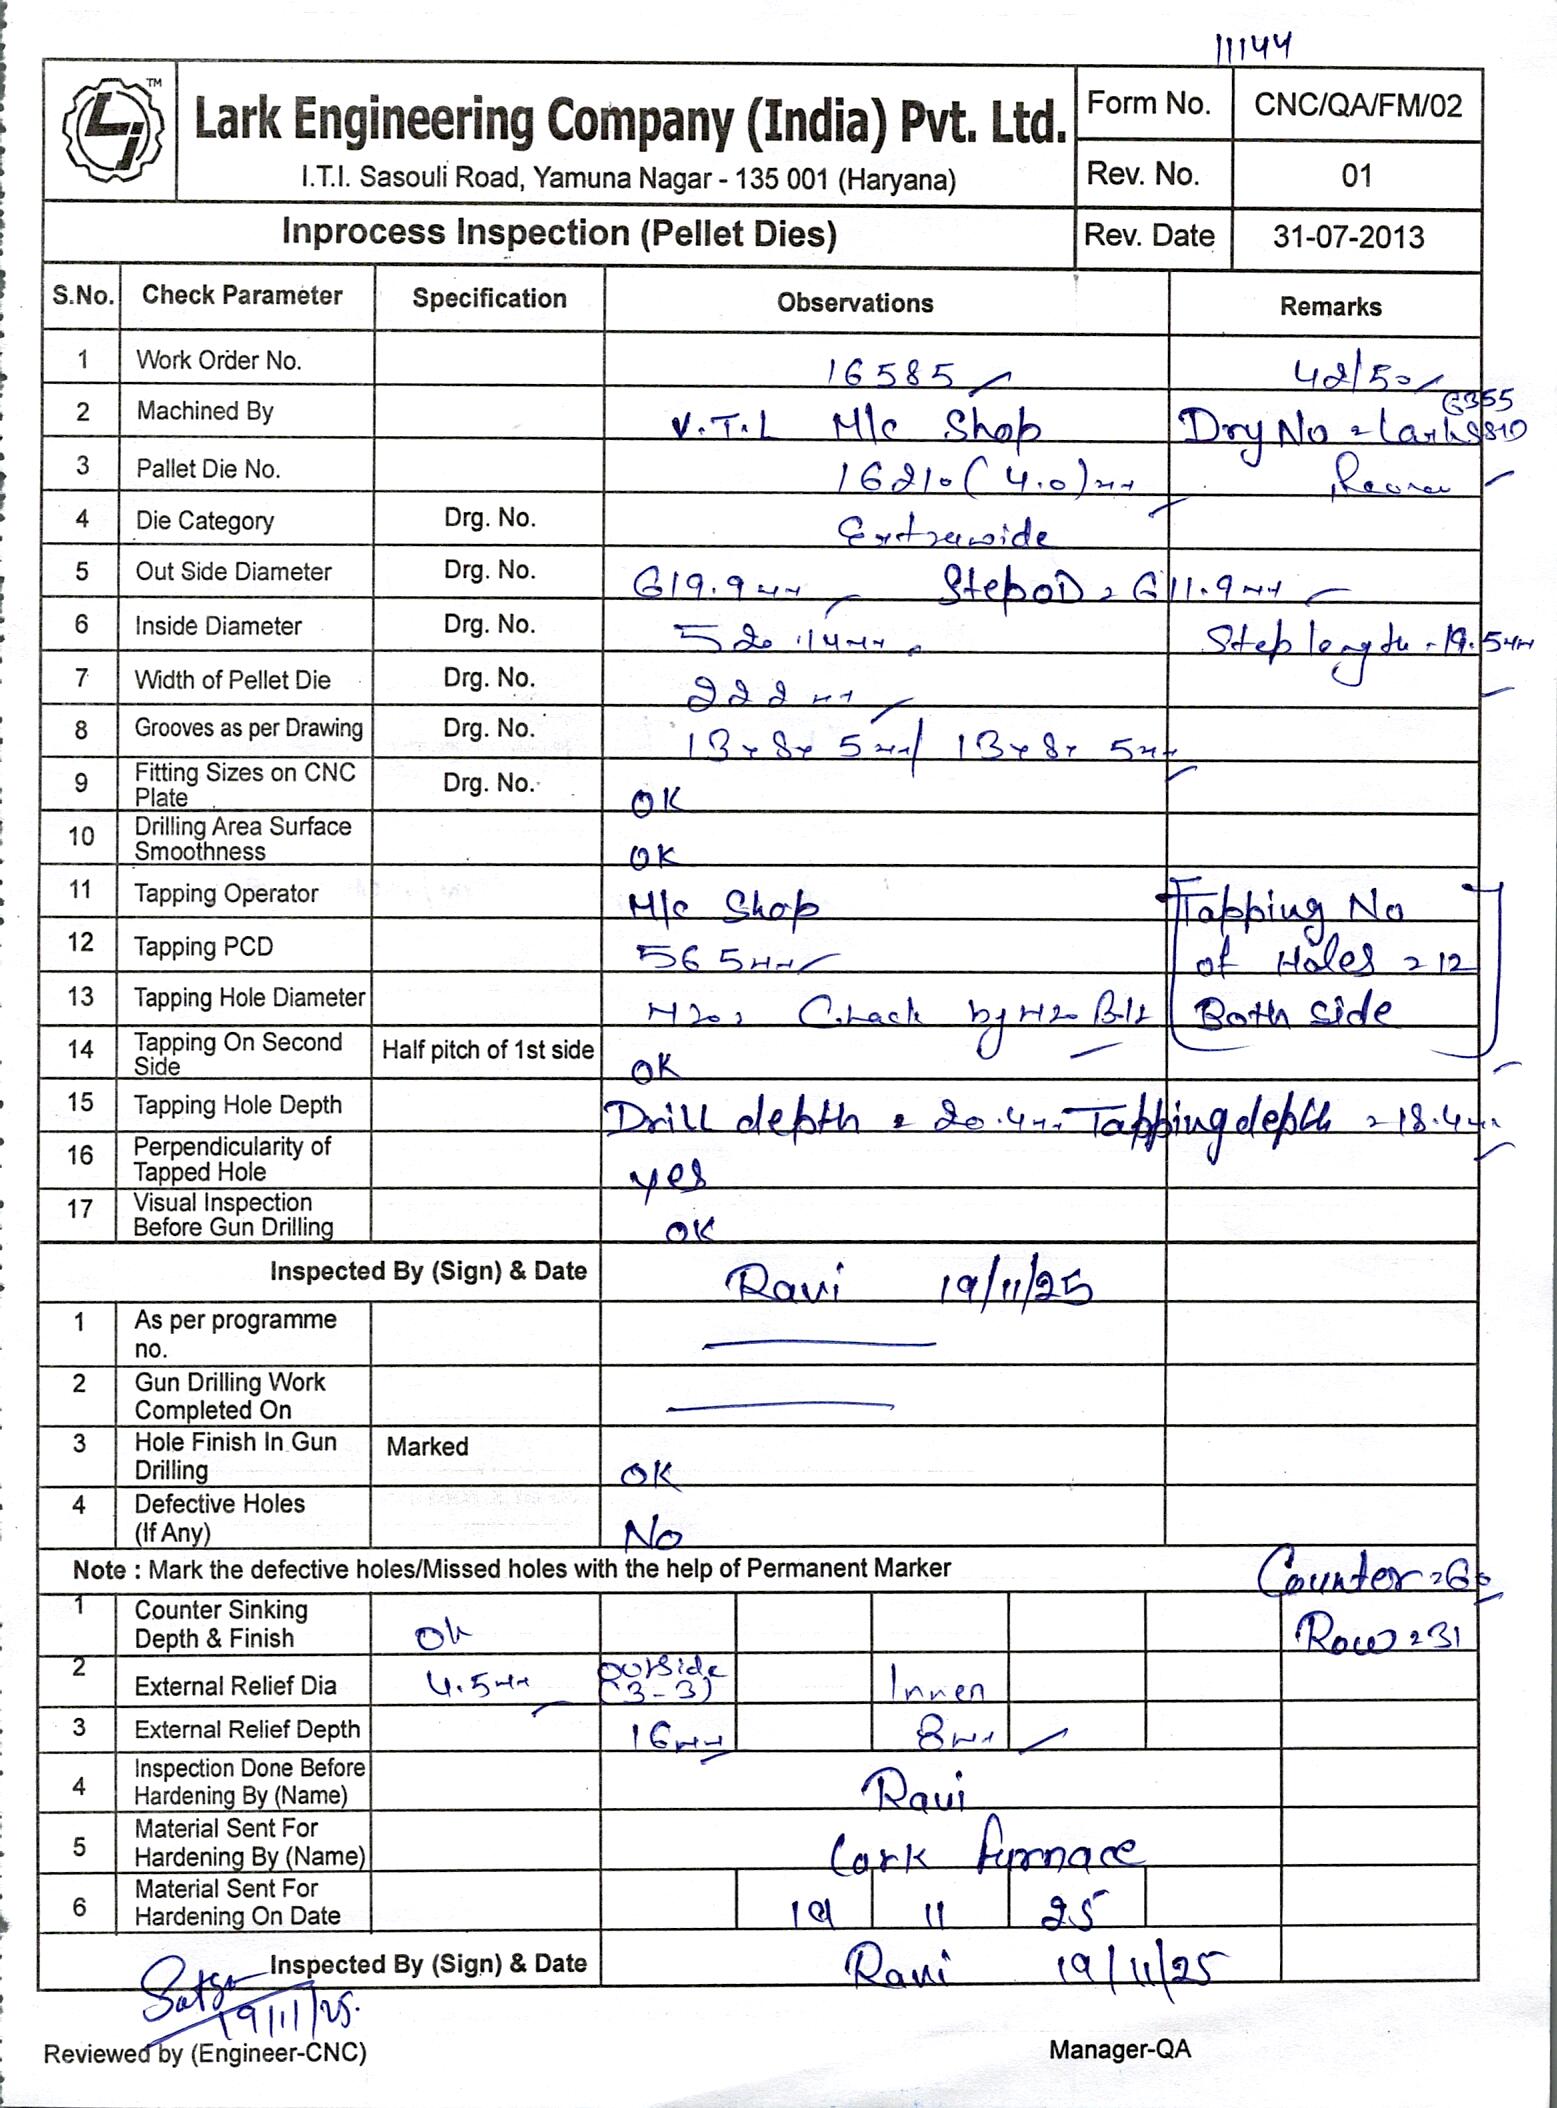 11144
TM
Lark Engineering Company (India) Pvt. Ltd.
I.T.I. Sasouli Road, Yamuna Nagar - 135 001 (Haryana)
Form No. CNC/QA/FM/02
Rev. No. 01
Inprocess Inspection (Pellet Dies) Rev. Date 31-07-2013
S.No. Check Parameter Specification Observations Remarks
1 Work Order No. 16585 42/50
2 Machined By V.T.L M/c Shop Drg No =
3 Pallet Die No. 16210 (4.0)mm
4 Die Category Drg. No. Extrawide
5 Out Side Diameter Drg. No. 619.9mm Step OD = 611.9mm
6 Inside Diameter Drg. No. 520.14mm Step length = 19.5mm
7 Width of Pellet Die Drg. No. 222mm
8 Grooves as per Drawing Drg. No. 13x8x5mm/ 13x8x5mm
9 Fitting Sizes on CNC Plate Drg. No. OK
10 Drilling Area Surface Smoothness OK
11 Tapping Operator M/c Shop Tapping No
12 Tapping PCD 565mm of Holes = 12
13 Tapping Hole Diameter M20, Chack by M20 Bolt Both side
14 Tapping On Second Side Half pitch of 1st side OK
15 Tapping Hole Depth Drill depth = 20.4mm Tapping depth = 18.4mm
16 Perpendicularity of Tapped Hole yes
17 Visual Inspection Before Gun Drilling OK
Inspected By (Sign) & Date Ravi 19/11/25
1 As per programme no.
2 Gun Drilling Work Completed On
3 Hole Finish In Gun Drilling Marked OK
4 Defective Holes (If Any) No
Note : Mark the defective holes/Missed holes with the help of Permanent Marker Counter = 60
1 Counter Sinking Depth & Finish Ok Row = 31
2 External Relief Dia 4.5mm Outside (3-3) Innen
3 External Relief Depth 16mm 8mm
4 Inspection Done Before Hardening By (Name) Ravi
5 Material Sent For Hardening By (Name) Lark furnace
6 Material Sent For Hardening On Date 19 11 25
Inspected By (Sign) & Date Ravi 19/11/25
19/11/25.
Reviewed by (Engineer-CNC) Manager-QA